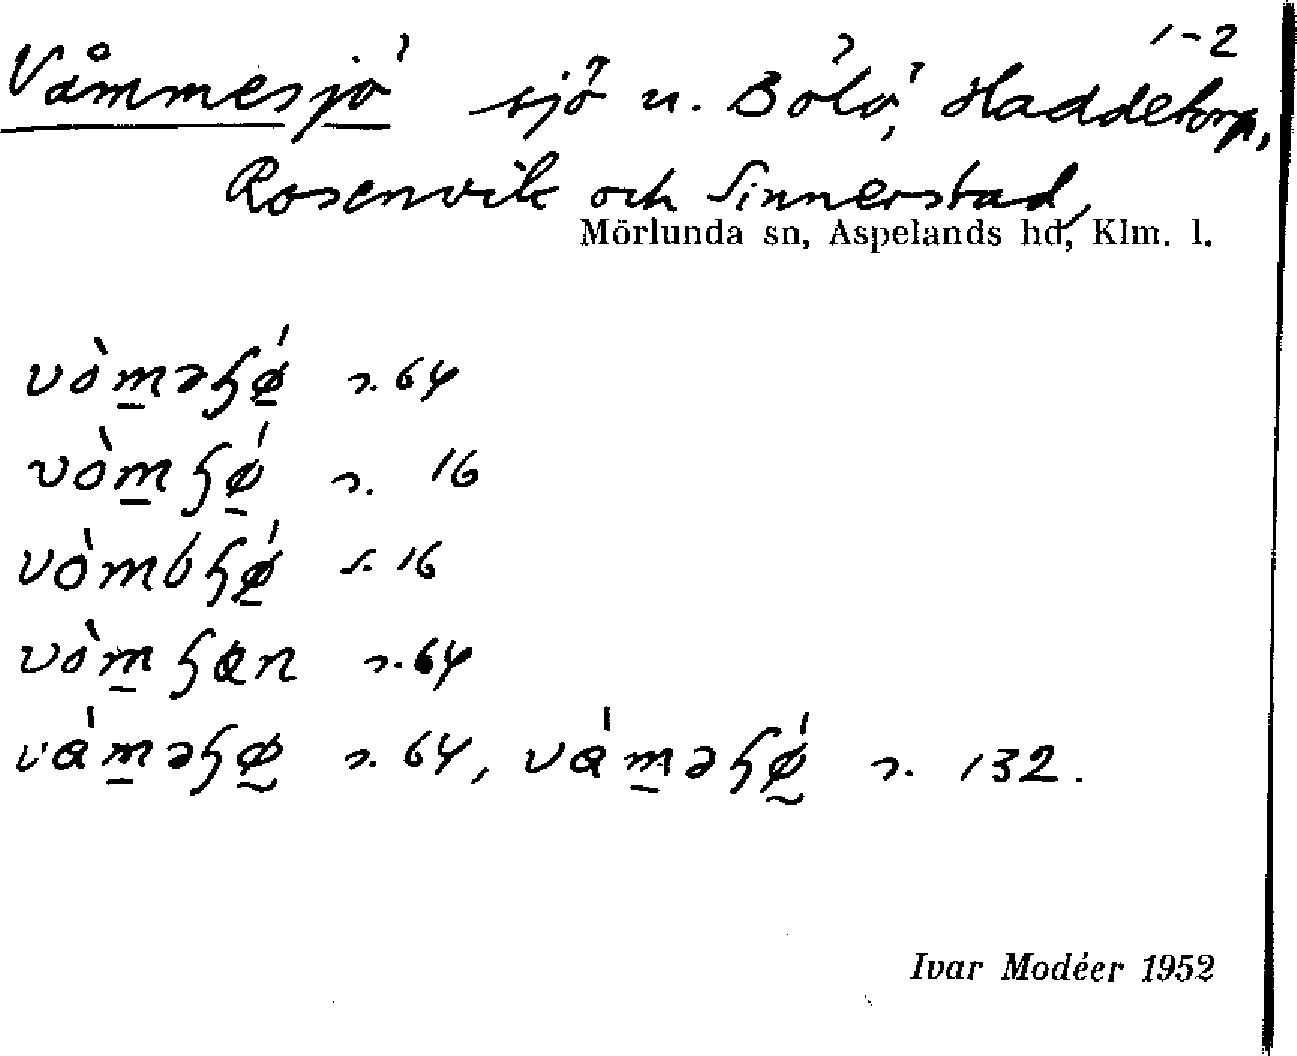 1-2
Våmmesjö sjö u. Bölö, Haddetorp,
Rosenvik och Sinnerstad,
Mörlunda sn, Aspelands hd, Klm. l.
vòm̲əɧǿ̲ s. 64
vòm̲ɧǿ̲ s. 16
vòmbɧǿ̲ s. 16
vòm̲ɧɑn s. 64
vɑ́m̲əɧø̰ s. 64, vɑ́m̲əɧǿ̰ s. 132.
Ivar Modéer 1952